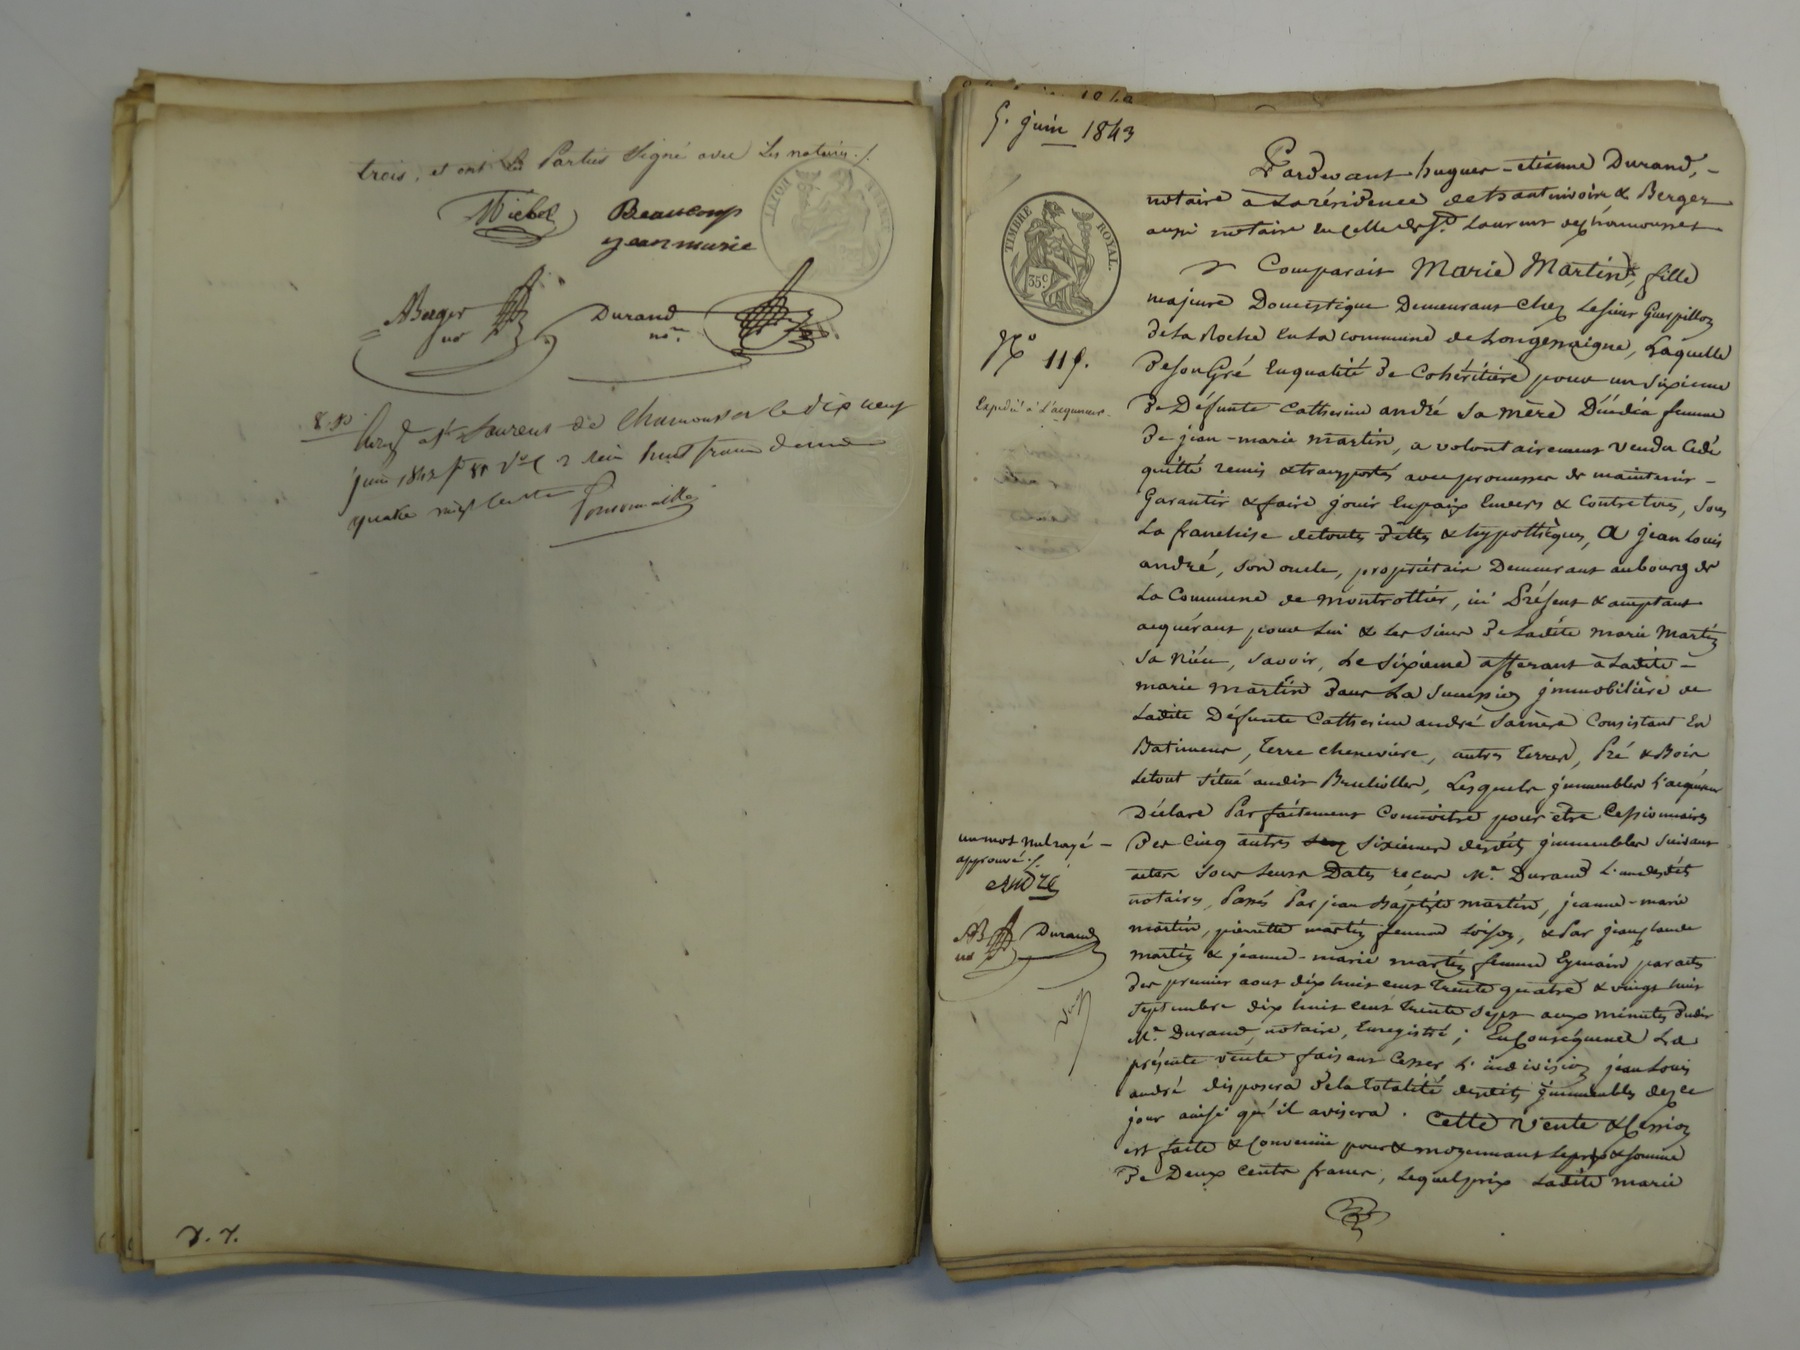 trois, et ont les Parties signé avec les notaires ./.
Michel Beaucoup
jean marie
ABerger Durand
nre nre.
8. Rle
Enregé à St Laurent de Chamousset le dix neuf
juin 1843 reçu huit francs
quatre vingt
TIMBRE ROYAL
γ. γ.
5. juin 1843
Pardevant hugues-étienne Durand, -
notaire à la résidence de hauterivoire & Berger
aussi notaire en celle de St. Laurent de chamousset
TIMBRE ROYAL.
35 c
Comparait Marie Martin, fille
majeure Domestique Demeurant chez le sieur Guerpillon
de La Roche en la commune de Longessaigne, Laquelle
No 115.
De son Gré En qualité De Cohéritière pour un sixieme
Expédié à l'acquéreur.
De Défunte Catherine andré sa mère Décédée femme
De jean-marie martin, a volontairement vendu cédé
quitté remis & transporté avec promesse de maintenir -
Garantir & faire jouir En paix Envers & Contre tous, sous
La franchise de toutes dettes & hypothèques, A jean Louis
andré, son oncle, propriétaire Demeurant au bourg de
La Commune de montrottier, ici Présent & acceptant
acquérant pour Lui & les siens De Ladite marie Martin
sa Nièce, savoir, Le sixieme afferant à Ladite -
marie martin Dans La succession jmmobilière de
Ladite Défunte Catherine andré sa mère Consistant En
Batiments, terre cheneviere, autres terres, Pré & Bois
Le tout situé au dit Brulioles, Lesquels jmmeubles l'acquéreur
Déclare Parfaitement Connoitre pour être Cessionnaire
un mot nul rayé -
approuvé ./.
André
AB Durand
nre
Des Cinq autres sixiemes desdits jmmeubles suivant
actes sous leurs Dates reçus Me. Durand L'un desdits
notaires, Passés Par jean Baptiste martin, jeanne-marie
martin, pierrette martin femme Loison, & Par jean claude
martin & jeanne-marie martin femme Eymain par actes
des premier aout dix huit cent trente quatre & vingt huit
septembre dix huit cent trente sept aux minutes dudit
Me. Durand, notaire, Enregistré ; En conséquence La
présente vente faisant Cesser L'indivision jean Louis
andré disposera De la totalité desdits jmmeubles de ce
jour ainsi qu'il avisera . Cette Vente & Cession
est faite & Convenüe pour & moyennant le prix & somme
De Deux cents francs, Lequel prix Ladite marie